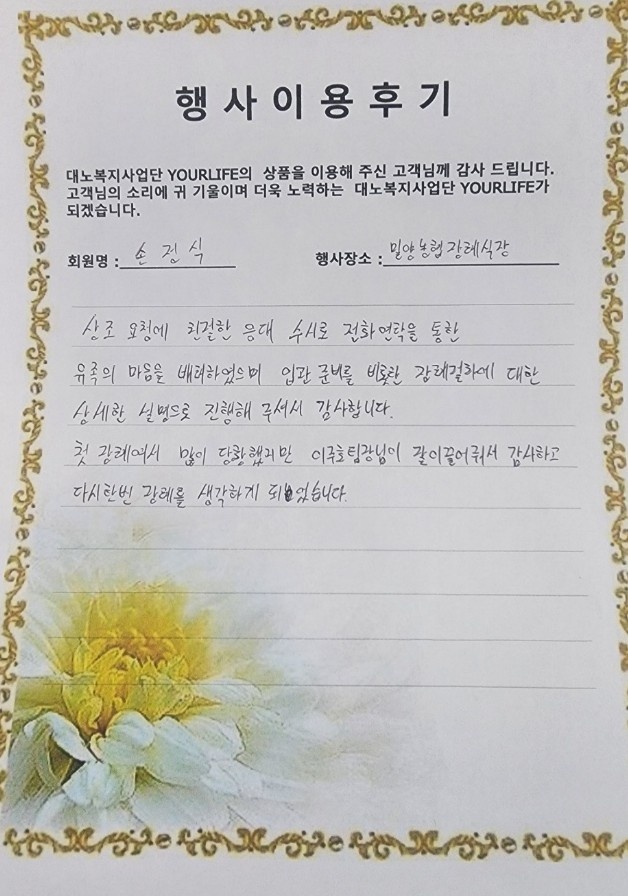 행사이용후기
대노복지사업단 YOURLIFE의 상품을 이용해 주신 고객님께 감사 드립니다.
고객님의 소리에 귀 기울이며 더욱 노력하는 대노복지사업단 YOURLIFE가
되겠습니다.
회원명 : 손정식 행사장소 : 밀양농협장례식장
상조 요청에 친절한 응대 수시로 전화연락을 통한
유족의 마음을 배려하였으며 입관준비를 비롯한 장례절차에 대한
상세한 설명으로 진행해 주셔서 감사합니다.
첫 장례여서 많이 당황했지만 이주호팀장님이 잘이끌어줘서 감사하고
다시한번 장례를 생각하게 되었습니다.